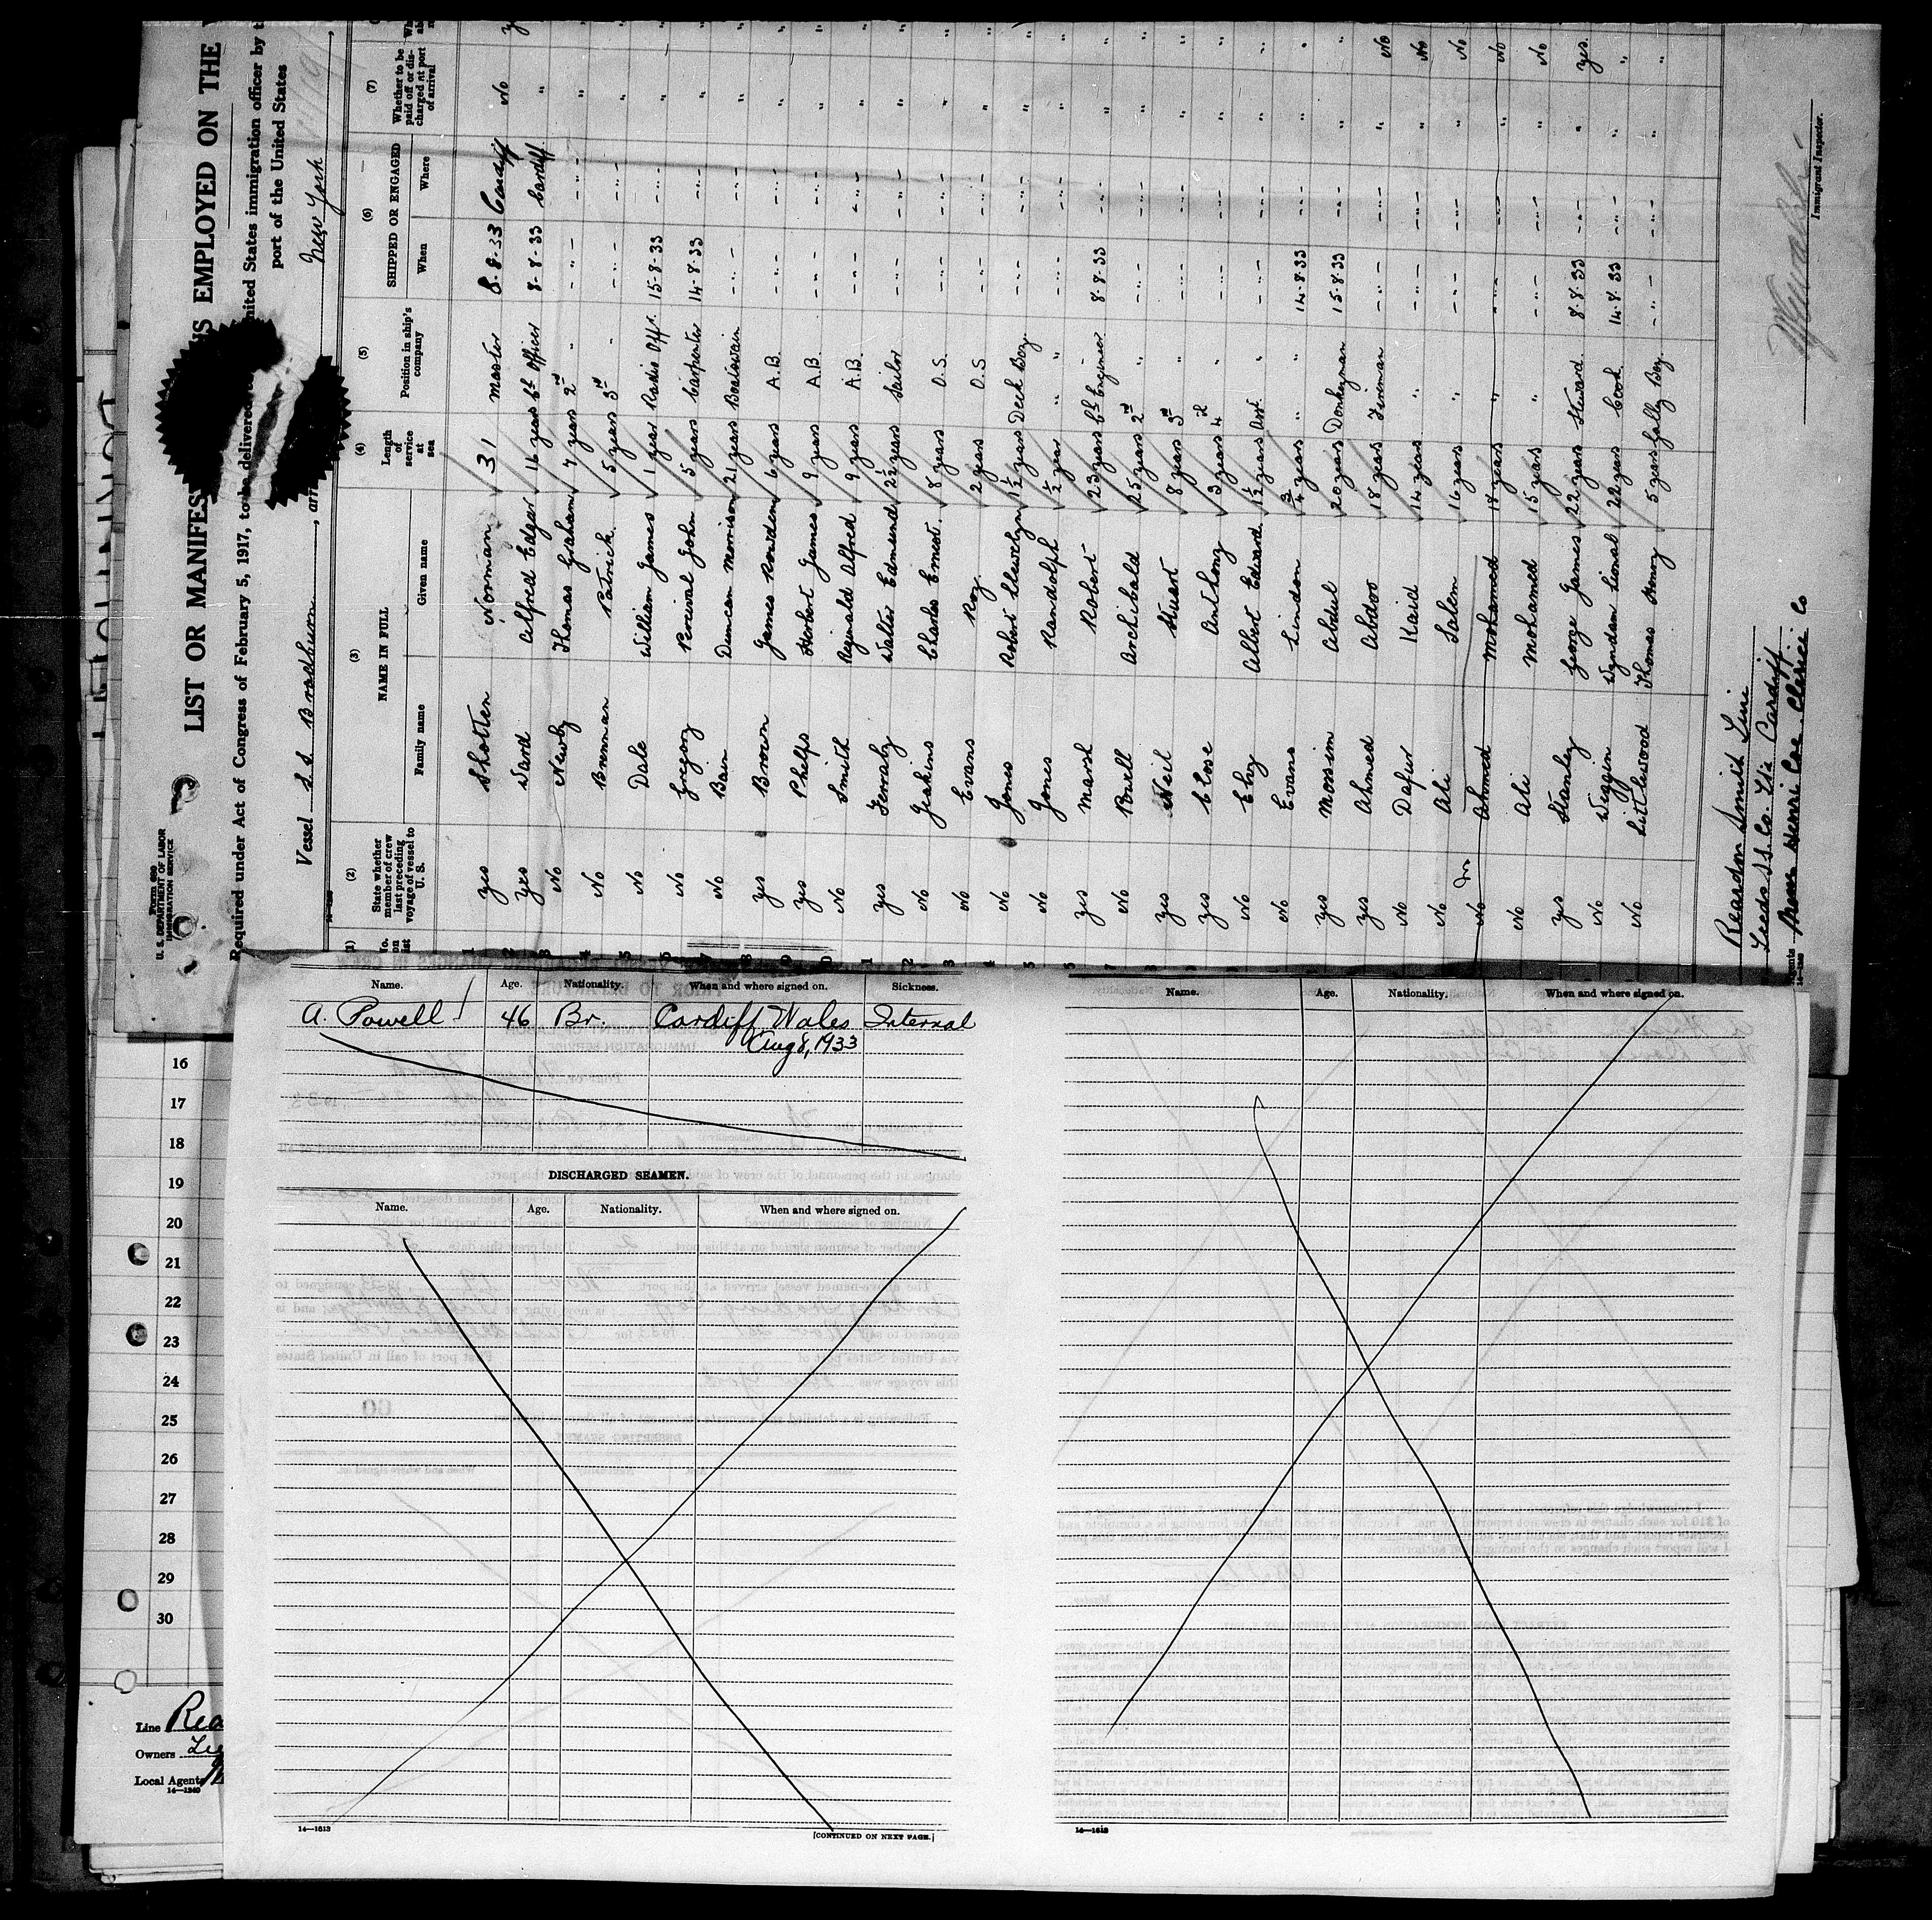 Form 689
U. S. DEPARTMENT OF LABOR
IMMIGRATION SERVICE
LIST OR MANIFES S EMPLOYED ON THE
Required under Act of Congress of February 5, 1917, to be delivered nited States immigration officer by
port of the United States
Vessel S.S. Bradburn, arri New York
(1) (2) (3) (4) (5) (6) (7)
No. on list State whether member of crew last preceding voyage of vessel to U. S. NAME IN FULL Length of service at sea Position in ship's company SHIPPED OR ENGAGED Whether to be paid off or discharged at port of arrival
Family name Given name When Where
1 yes Shotten Norman 31 Master 8-8-33 Cardiff No
2 yes Ward Alfred Edgar 16 years Ch Officer 8-8-33 Cardiff "
3 No Newby Thomas Graham 7 years 2nd " -"- -"- "
4 No Brennan Patrick 5 years 3rd " -"- -"- "
5 No Dale William James 1 year Radio Offr. 15-8-33 -"- "
No Gregory Percival John 5 years Carpenter 14-8-33 -"- "
7 No Bain Duncan Morrison 21 years Boatswain -"- -"- "
8 yes Brown James Rowden 6 years A.B. -"- -"- "
9 yes Phelps Herbert James 9 years A.B. -"- -"- "
0 No Smith Reginald Alfred 9 years A.B. -"- -"- "
1 yes Walter Edmund 2½ years Sailor -"- -"- "
2 No Jeakins Charles Ernest 8 years O.S. -"- -"- "
3 No Evans Roy 2 years O.S -"- -"- "
4 No Jones Robert Llewelyn 1½ years Deck Boy -"- -"- "
5 No Jones Randolph ½ year " -"- -"- "
yes Marsh Robert 23 years Ch Engineer 8-8-33 -"- "
7 No Powell Archibald 25 years 2nd " -"- -"- "
8 yes Neil Stuart 8 years 3rd " -"- -"- "
yes Close Anthony 3 years 4th " -"- -"- "
No Eby Albert Edward 1½ years Asst. " -"- -"- "
No Evans Lindon ¾ years " " 14-8-33 -"- "
yes Mossim Abdul 20 years Donkeyman 15-8-33 -"- "
yes Ahmed Abdoo 18 years Fireman -"- -"- " No
No Dafur Kaid 14 years " -"- -"- " No
No Ali Salem 16 years " -"- -"- " No
No Ahmed Mohamed 18 years " -"- -"- " No
No Ali Mohamed 15 years " -"- -"- " No
yes Stanley George James 22 years Steward 8-8-33 -"- " yes.
No Wiggin Wyndam Lional 22 years Cook 14-8-33 -"- " "
No Littlewood Thomas Henry 5 years Galley Boy -"- -"- " "
Reardon Smith Line
Leeds S.S. Co. Ltd Cardiff.
Agents Henri Cee. Clerici Co
14—1240
Immigrant Inspector.
Name. Age. Nationality. When and where signed on. Sickness.
A. Powell 46 Br. Cardiff, Wales Internal
Aug 8, 1933
DISCHARGED SEAMEN.
Name. Age. Nationality. When and where signed on.
14—1613
[CONTINUED ON NEXT PAGE.]
Name. Age. Nationality. When and where signed on.
14—1613
16
17
18
19
20
21
22
23
24
25
26
27
28
29
30
Line Rea
Owners Le
Local Agents
14—1240